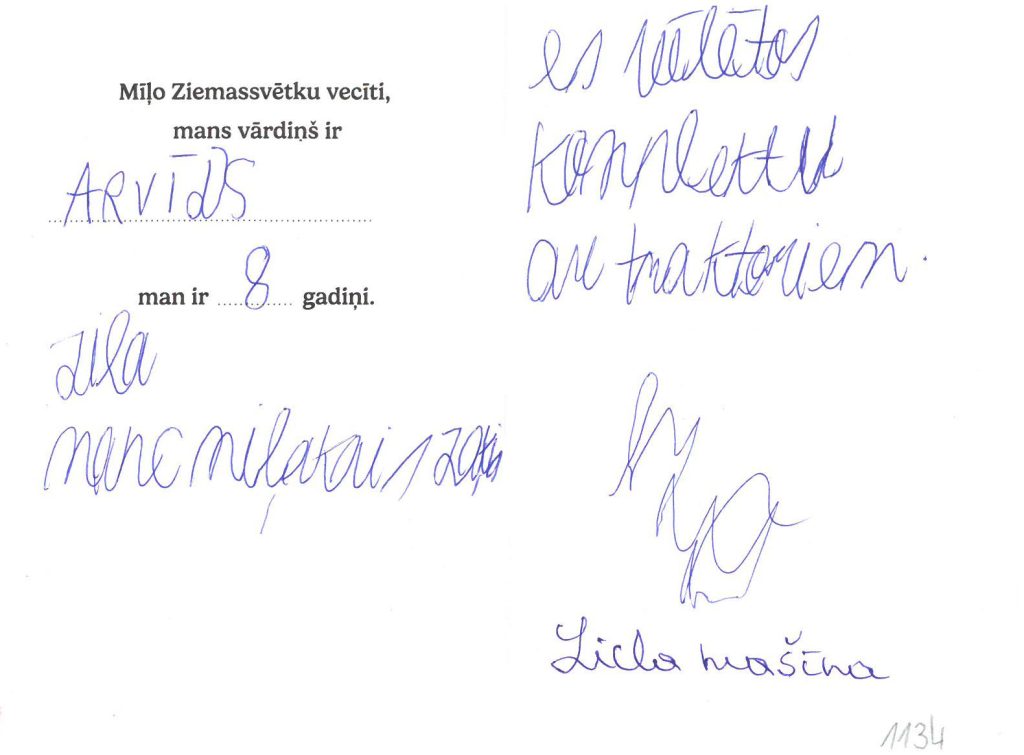 Mīļo Ziemassvētku vecīti,
mans vārdiņš ir
ARVĪDS
man ir 8 gadiņi.
zila
manc miļakais
es vēlētos
komplektu
ar traktoriem.
Liela mašīna
1134